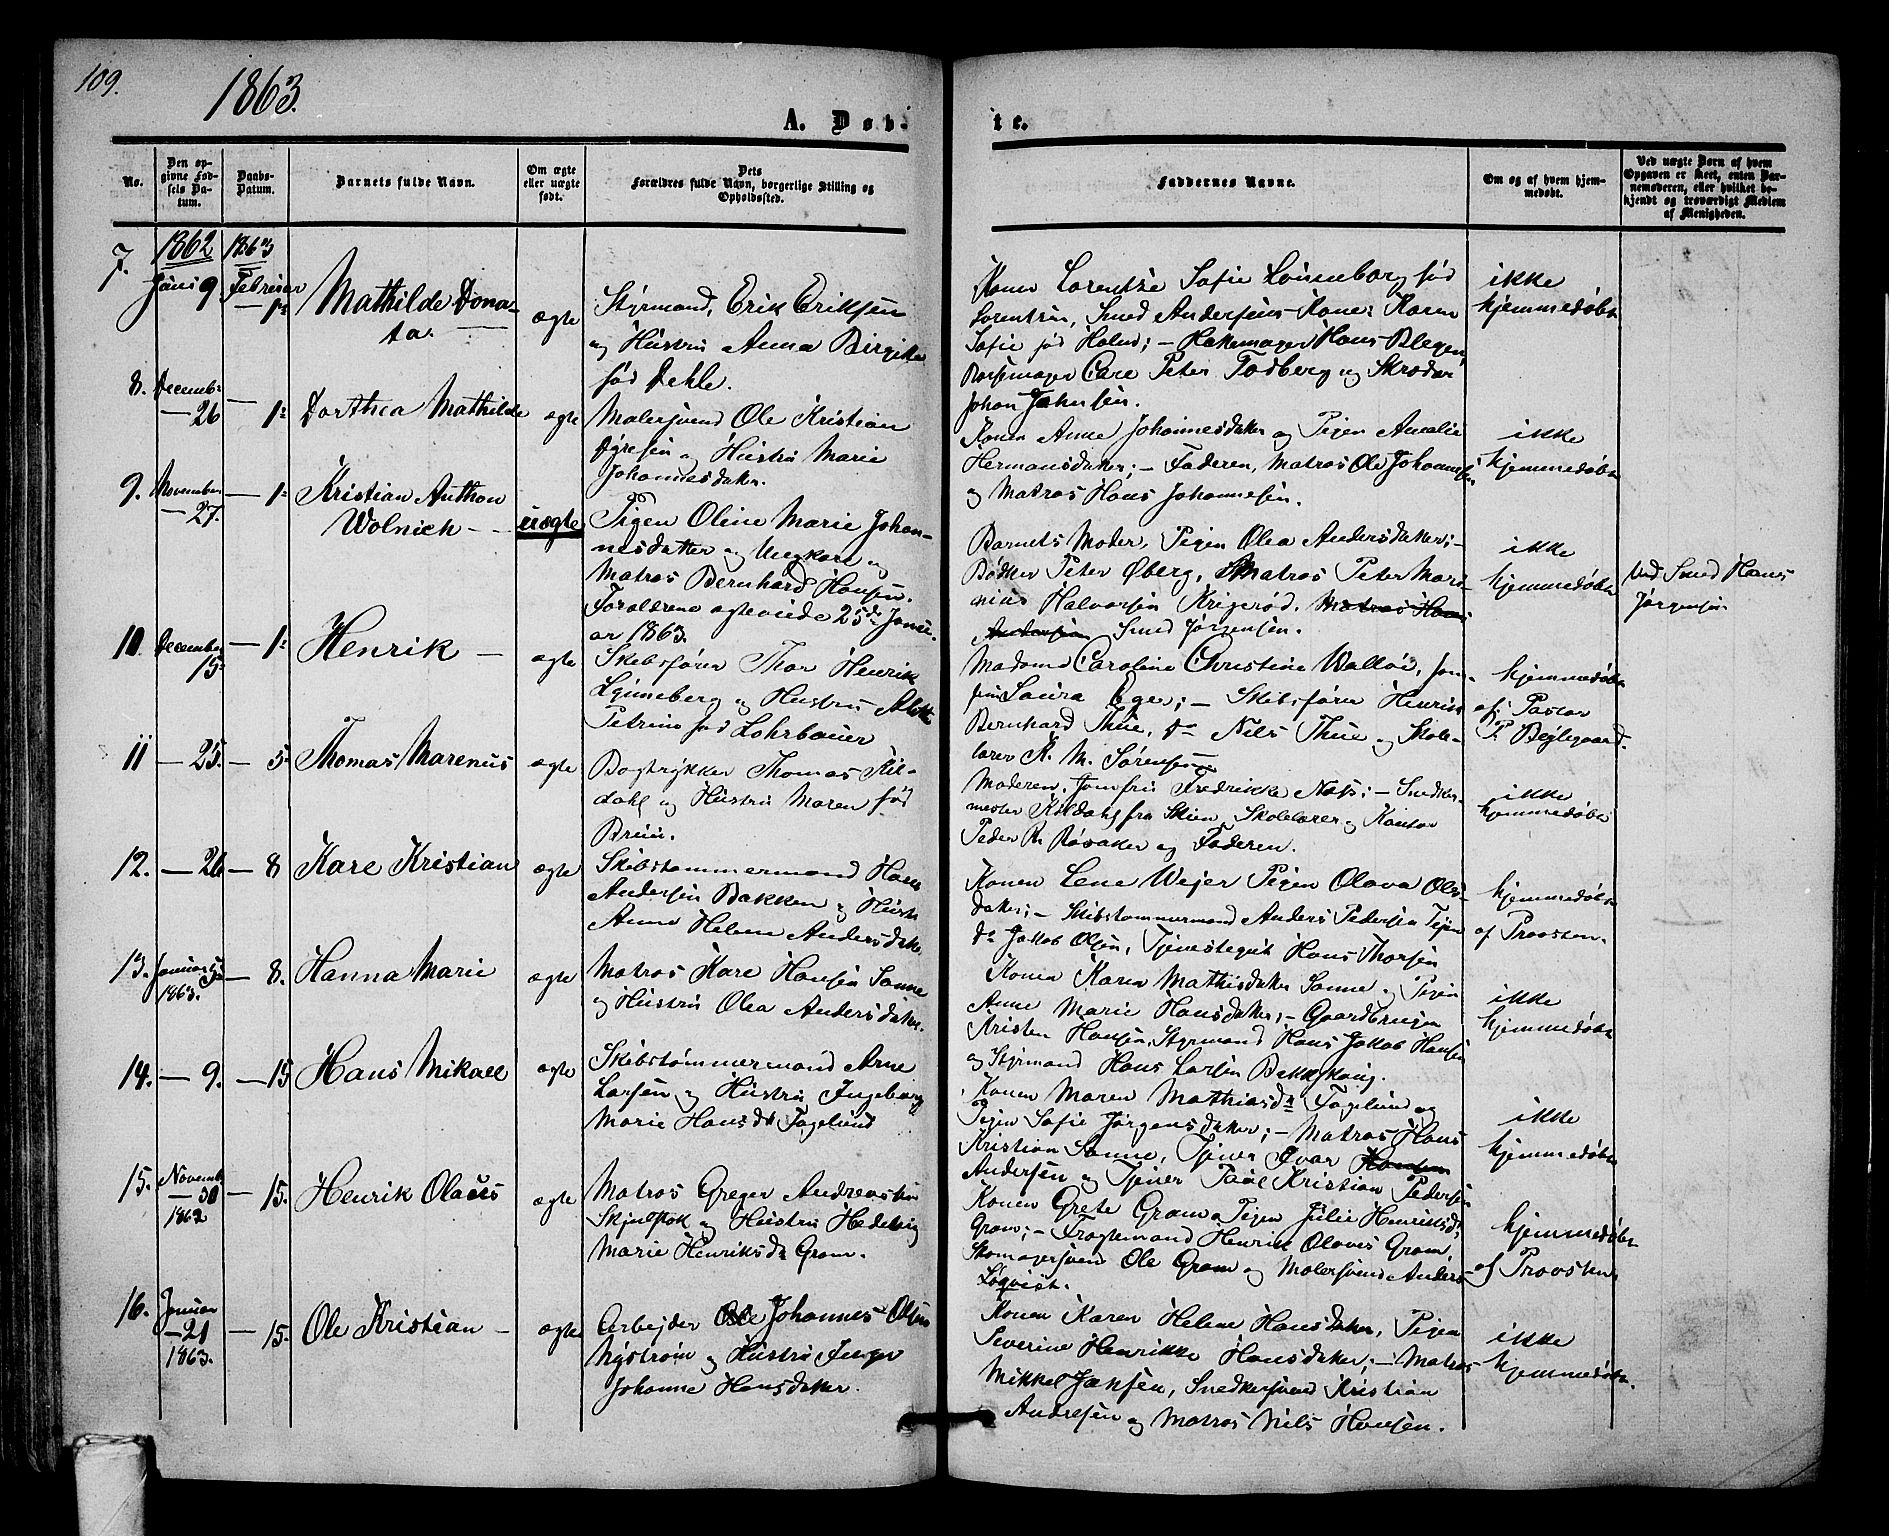 109.
1863.
A. Døb-
te.
No.
Den op-
givne Fød-
sels Da-
tum.
Daabs-
Datum.
Barnets fulde Navn.
Om ægte
eller uægte
født.
Dets
Forældres fulde Navn, borgerlige Stilling og
Opholdssted.
Faddernes Navne.
Om og af hvem hjem-
medøbt.
Ved uægte Børn af hvem
Opgaven er skeet, enten Bar-
nemoderen, eller hvilket be-
kjendt og troværdigt Medlem
af Menigheden.
7.
1862
Juni 9
1863
Februar
— 1ste
Mathilde Dona-
ta.
ægte
Styrmand, Erik Eriksen
og Hustru Anna Birgitte
fød Dehle.
Konen Lorentze Sofie født
Lorentzen, Smed Andersens Kone Karen
Sofie fød Holm; — Hans Blegen,
Peter Todberg og Skrædder
Johan Jahnsen.
ikke
hjemmedøbt
8.
Decemb:
— 26
— 1ste
Dorthea Mathilde
ægte
Malersvend Ole Kristian
og Hustru Marie
Johannesdatter.
Konen Anne Johannesdatter og Pigen Amalie
Hermansdatter; — Faderen, Matros Ole Johannesen
og Matros Hans Johannesen.
ikke
hjemmedøbt
9.
November
— 27.
— 1ste
Kristian Anthon
Wolnich —
uægte
Pigen Oline Marie Johan-
nesdatter og Ungkarl og
Matros Bernhard Hansen.
Forældrene ægteviede 25de Janu-
ar 1863.
Barnets Moder, Pigen Olea Andersdatter; —
Bødker Peter Øberg, Matros Peter Mari-
nius Halvorsen Krigerød. Matros Hans
Andersen Smed Jørgensen.
ikke
hjemmedøbt
Ved Smed Hans
Jørgensen
10
December
15
— 1ste
Henrik —
ægte
Skibsfører Thor Henrik
Lynneberg og Hustru Alette
Petrine fød Lohrbauer
Madame Caroline Christine Walløe, Jom-
fru Laura Eger; — Skibsfører Henrik
Bernhard Thue, do Nils Thue og Skole-
lærer K. M. Sørensen
hjemmedøbt
af Pastor
P. Bejlegaard.
11
— 25.
— 5
Thomas Marenus
ægte
Bogtrykker Thomas Kil-
dahl og Hustru Maren fød
Bruun.
Moderen, Jomfru Fredrikke Næss; — Snedker-
mester Kildahl fra Skien, Skolelærer og Kantor
Peder R. Røsaker og Faderen.
ikke
hjemmedøbt
12.
— 26
— 8
Karl Kristian
ægte
Skibstømmermand Hans
Andersen Bakken og Hustru
Anne Helene Andersdatter.
Konen Lene Wejer Pigen Olava Ols-
datter; — Skibstømmermand Anders Pedersen Tejen
do Jakob Olsen, Tjenestegut Hans Thorsen
hjemmedøbt
af Provsten.
13.
Januar 5
1863.
— 8.
Hanna Marie
ægte
Matros Karl Hansen Sanne
og Hustru Olea Andersdatter.
Konen Karen Mathisdatter Sanne og Pigen
Anne Marie Hansdatter; — Gaardbruger
Kristen Hansen, Styrmand Hans Jakob Hansen
og Styrmand Hans Larsen Bakkskaug.
ikke
hjemmedøbt
14.
— 9.
— 15
Hans Mikael
ægte
Skibstømmermand Arne
Larsen og Hustru Ingeborg
Marie Hansdt Fagelund
Konen Maren Mathiasdr Fagelund og
Pigen Sofie Jørgensdatter; — Matros Hans
Kristian Sanne, Tjener Ivar
Andersen og Tjener Paul Kristian Pedersen
ikke
hjemmedøbt
15.
Novemb
— 30
1862
— 15.
Henrik Olaus
ægte
Matros Greger Andreassen
Skjulstok og Hustru Hedevig
Marie Henriksdt Gram.
Konen Grete Gram, Pigen Julie Henriksdt
Gram; — Fragtemand Henrik Olaves Gram,
Skomagersvend Ole Gram og Malersvend Anders
Løqvist.
hjemmedøbt
af Provsten
16.
Januar
— 21
1863.
— 15.
Ole Kristian —
ægte
Arbejder Ole Johannes Olsen
Nystrøm og Hustru Inger
Johanne Hansdatter.
Konen Karen Helene Hansdatter, Pigen
Severine Henrikke Hansdatter; — Matros
Mikkel Jaksen, Snedkersvend Kristian
Andresen og Matros Nils Hansen.
ikke
hjemmedøbt.